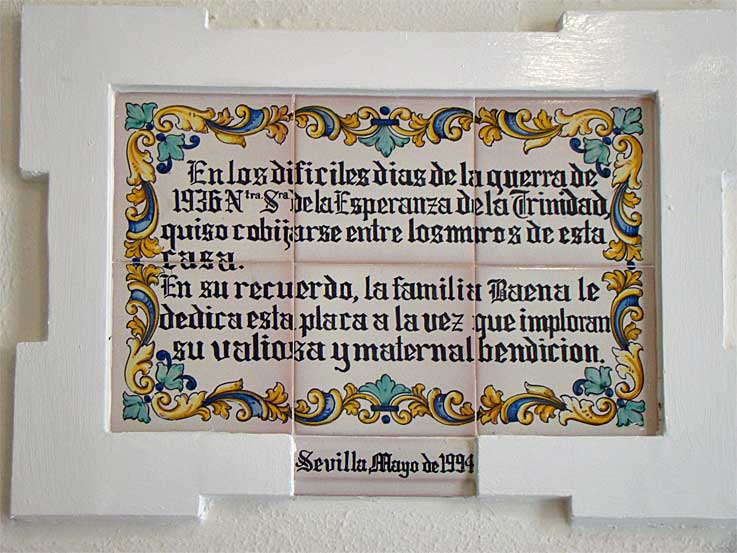 En los dificiles dias de la guerra de
1936 Ntra. Sra de la Esperanza de la Trinidad,
quiso cobijarse entre los muros de esta
casa.
En su recuerdo, la familia Baena le
dedica esta placa a la vez que imploran
su valiosa y maternal bendicion.
Sevilla Mayo de 1994